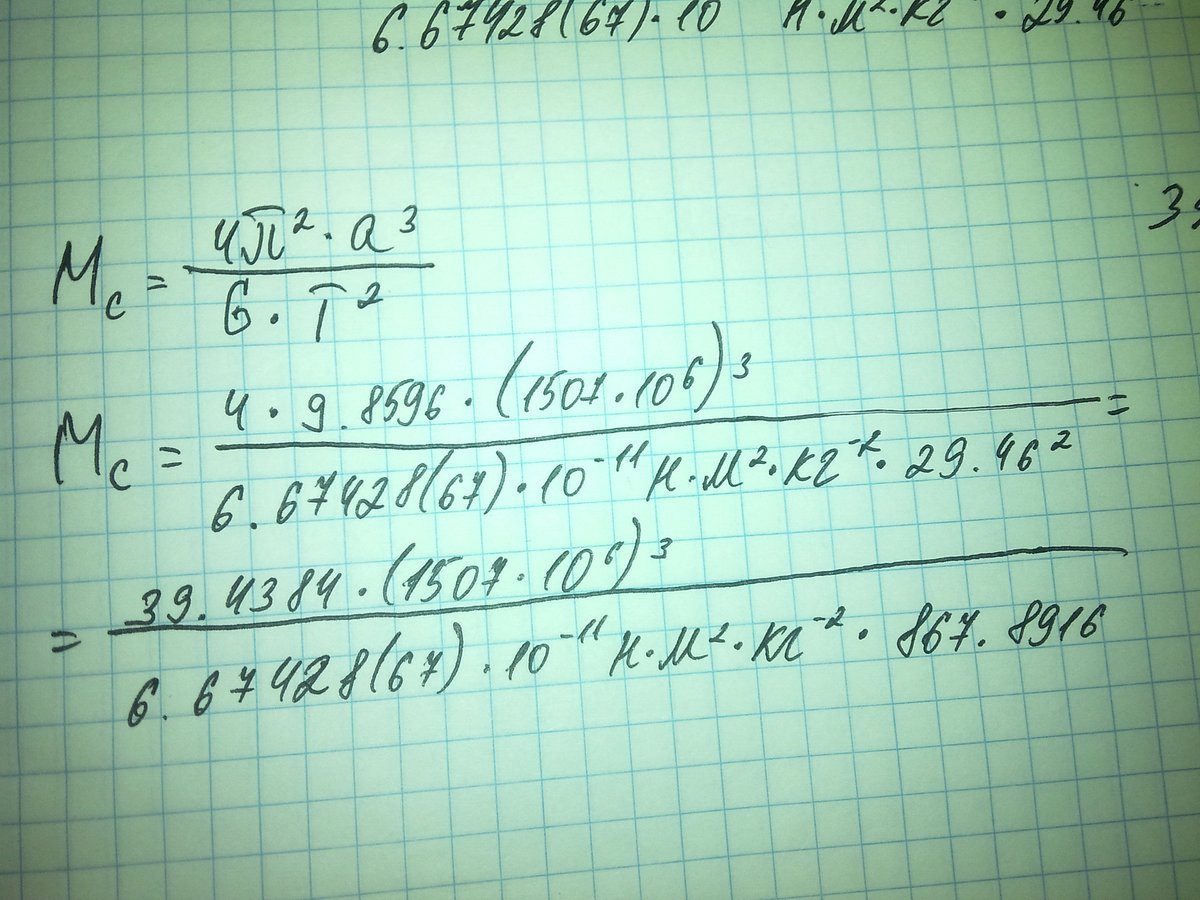 6.67428(67)·10 Н·м²·кг · 29.46
39
Mc = 4π²·a³ / G·T²
Mc = 4·9.8596·(1507·10⁶)³ / 6.67428(67)·10⁻¹¹ Н·м²·кг⁻²·29.46² =
= 39.4384·(1507·10⁶)³ / 6.67428(67)·10⁻¹¹ Н·м²·кг⁻²·867.8916